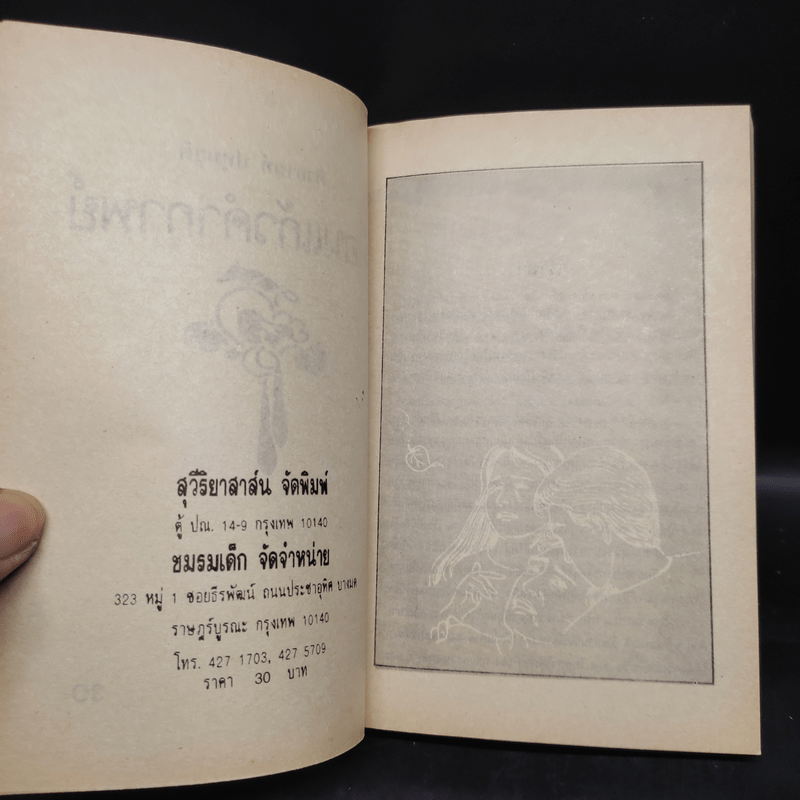 สุวีริยาสาส์น จัดพิมพ์
ตู้ ปณ. 14-9 กรุงเทพ 10140
ชมรมเด็ก จัดจำหน่าย
323 หมู่ 1 ซอยธีรพัฒน์ ถนนประชาอุทิศ บางมด
ราษฎร์บูรณะ กรุงเทพ 10140
โทร. 427 1703, 427 5709
ราคา 30 บาท